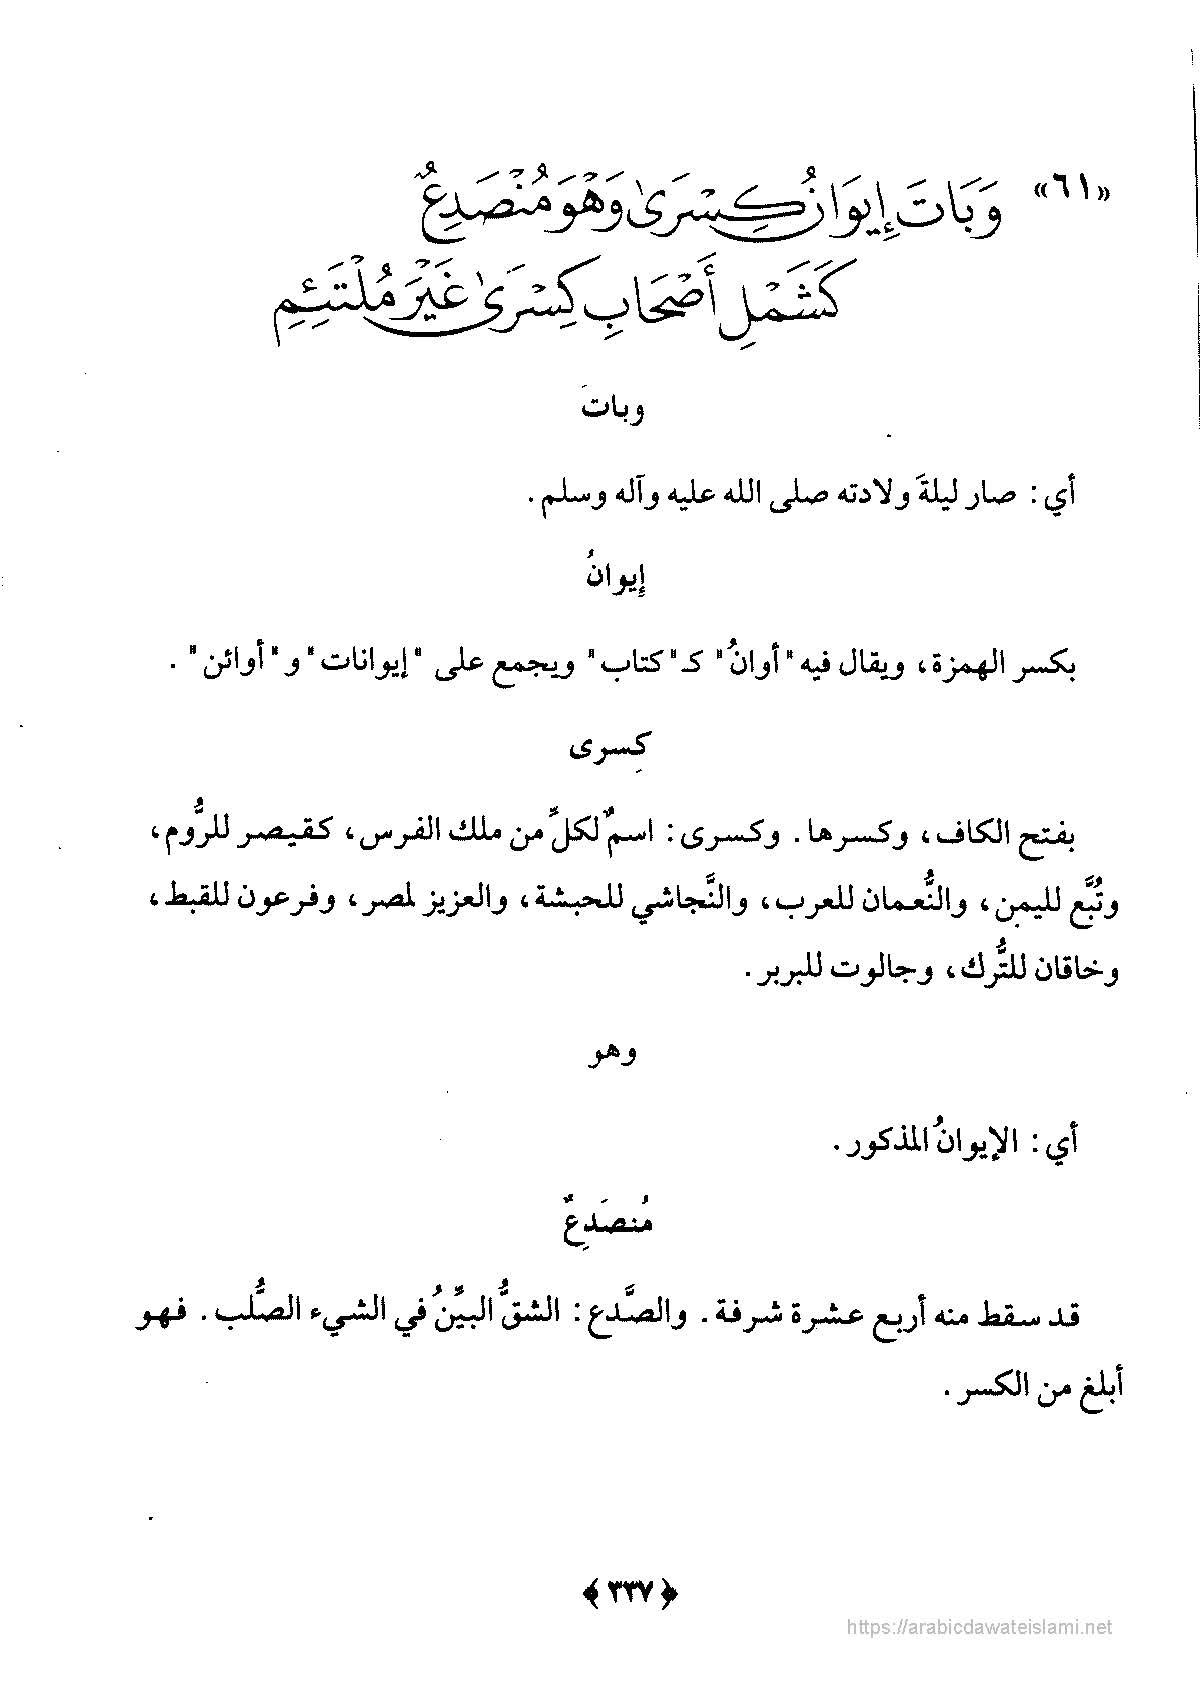 «٦١» وَبَاتَ إِيوَانُ كِسْرَىٰ وَهْوَ مُنْصَدِعٌ
كَشَمْلِ أَصْحَابِ كِسْرَىٰ غَيْرَ مُلْتَئِمِ
وباتَ
أي: صار ليلةَ ولادته صلى الله عليه وآله وسلم.
إيوانُ
بكسر الهمزة، ويقال فيه "أوانُ" كـ"كتاب" ويجمع على "إيوانات" و"أوائن".
كِسرى
بفتح الكاف، وكسرها. وكسرى: اسمٌ لكلِّ من ملك الفرس، كقيصر للرُّوم،
وتُبَّع لليمن، والنُّعمان للعرب، والنَّجاشي للحبشة، والعزيز لمصر، وفرعون للقبط،
وخاقان للتُّرك، وجالوت للبربر.
وهو
أي: الإيوانُ المذكور.
مُنصَدِعٌ
قد سقط منه أربع عشرة شرفة. والصَّدع: الشقُّ البيِّنُ في الشيء الصُّلب. فهو
أبلغ من الكسر.
﴿٣٣٧﴾
https://arabicdawateislami.net